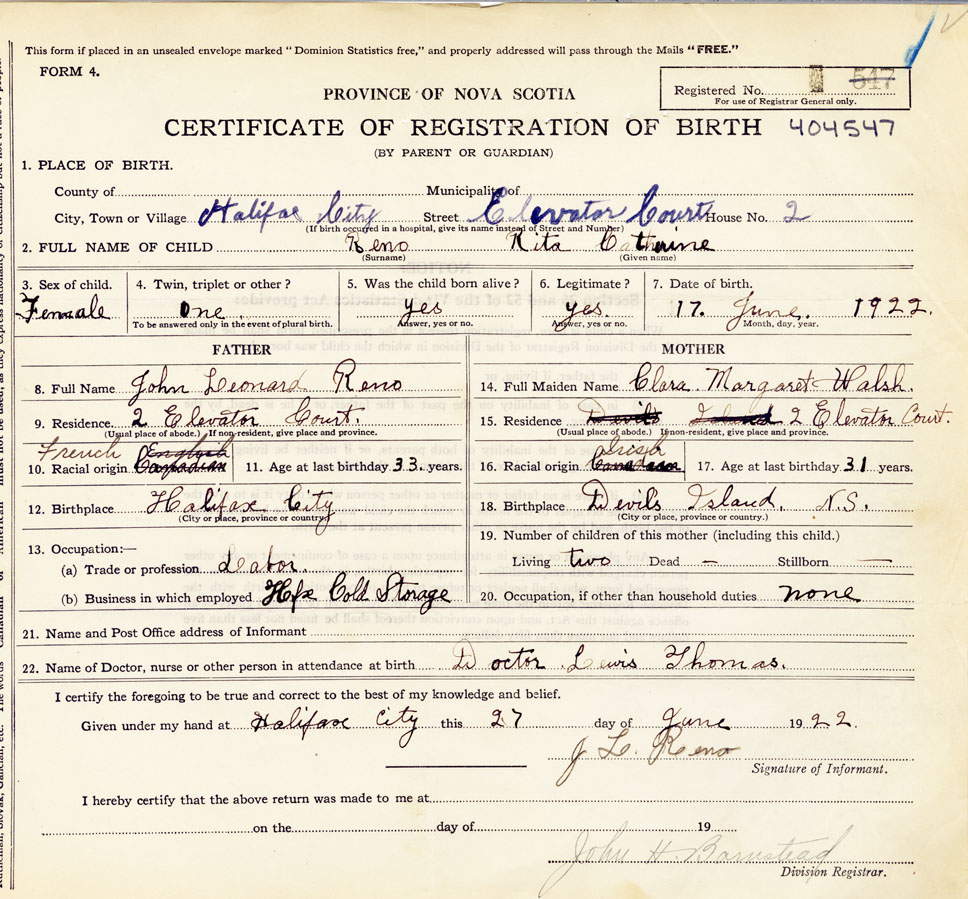 This form if placed in an unsealed envelope marked "Dominion Statistics free," and properly addressed will pass through the Mails "FREE."
FORM 4.
Registered No. 517
For use of Registrar General only.
PROVINCE OF NOVA SCOTIA
CERTIFICATE OF REGISTRATION OF BIRTH 404547
(BY PARENT OR GUARDIAN)
1. PLACE OF BIRTH.
County of Municipality of
City, Town or Village Halifax City Street Elevator Court House No. 2
(If birth occurred in a hospital, give its name instead of Street and Number)
2. FULL NAME OF CHILD Reno Rita Catherine
(Surname) (Given name)
3. Sex of child. 4. Twin, triplet or other? 5. Was the child born alive? 6. Legitimate? 7. Date of birth.
Female One. yes yes. 17. June. 1922.
To be answered only in the event of plural birth. Answer, yes or no. Answer, yes or no. Month, day, year.
FATHER MOTHER
8. Full Name John Leonard Reno 14. Full Maiden Name Clara Margaret Walsh.
9. Residence 2 Elevator Court. 15. Residence Devils Island 2 Elevator Court.
(Usual place of abode.) If non-resident, give place and province. (Usual place of abode.) If non-resident, give place and province.
French English Irish
10. Racial origin Canadian 11. Age at last birthday 33 years. 16. Racial origin Canadian 17. Age at last birthday 31 years.
12. Birthplace Halifax City 18. Birthplace Devils Island, N.S.
(City or place, province or country) (City or place, province or country.)
13. Occupation:— 19. Number of children of this mother (including this child.)
(a) Trade or profession Labor. Living two Dead — Stillborn —
(b) Business in which employed Hfx Cold Storage 20. Occupation, if other than household duties none
21. Name and Post Office address of Informant
22. Name of Doctor, nurse or other person in attendance at birth Doctor Lewis Thomas.
I certify the foregoing to be true and correct to the best of my knowledge and belief.
Given under my hand at Halifax City this 27 day of June 1922.
J L. Reno
Signature of Informant.
I hereby certify that the above return was made to me at
on the day of 19
John H. Barnstead
Division Registrar.